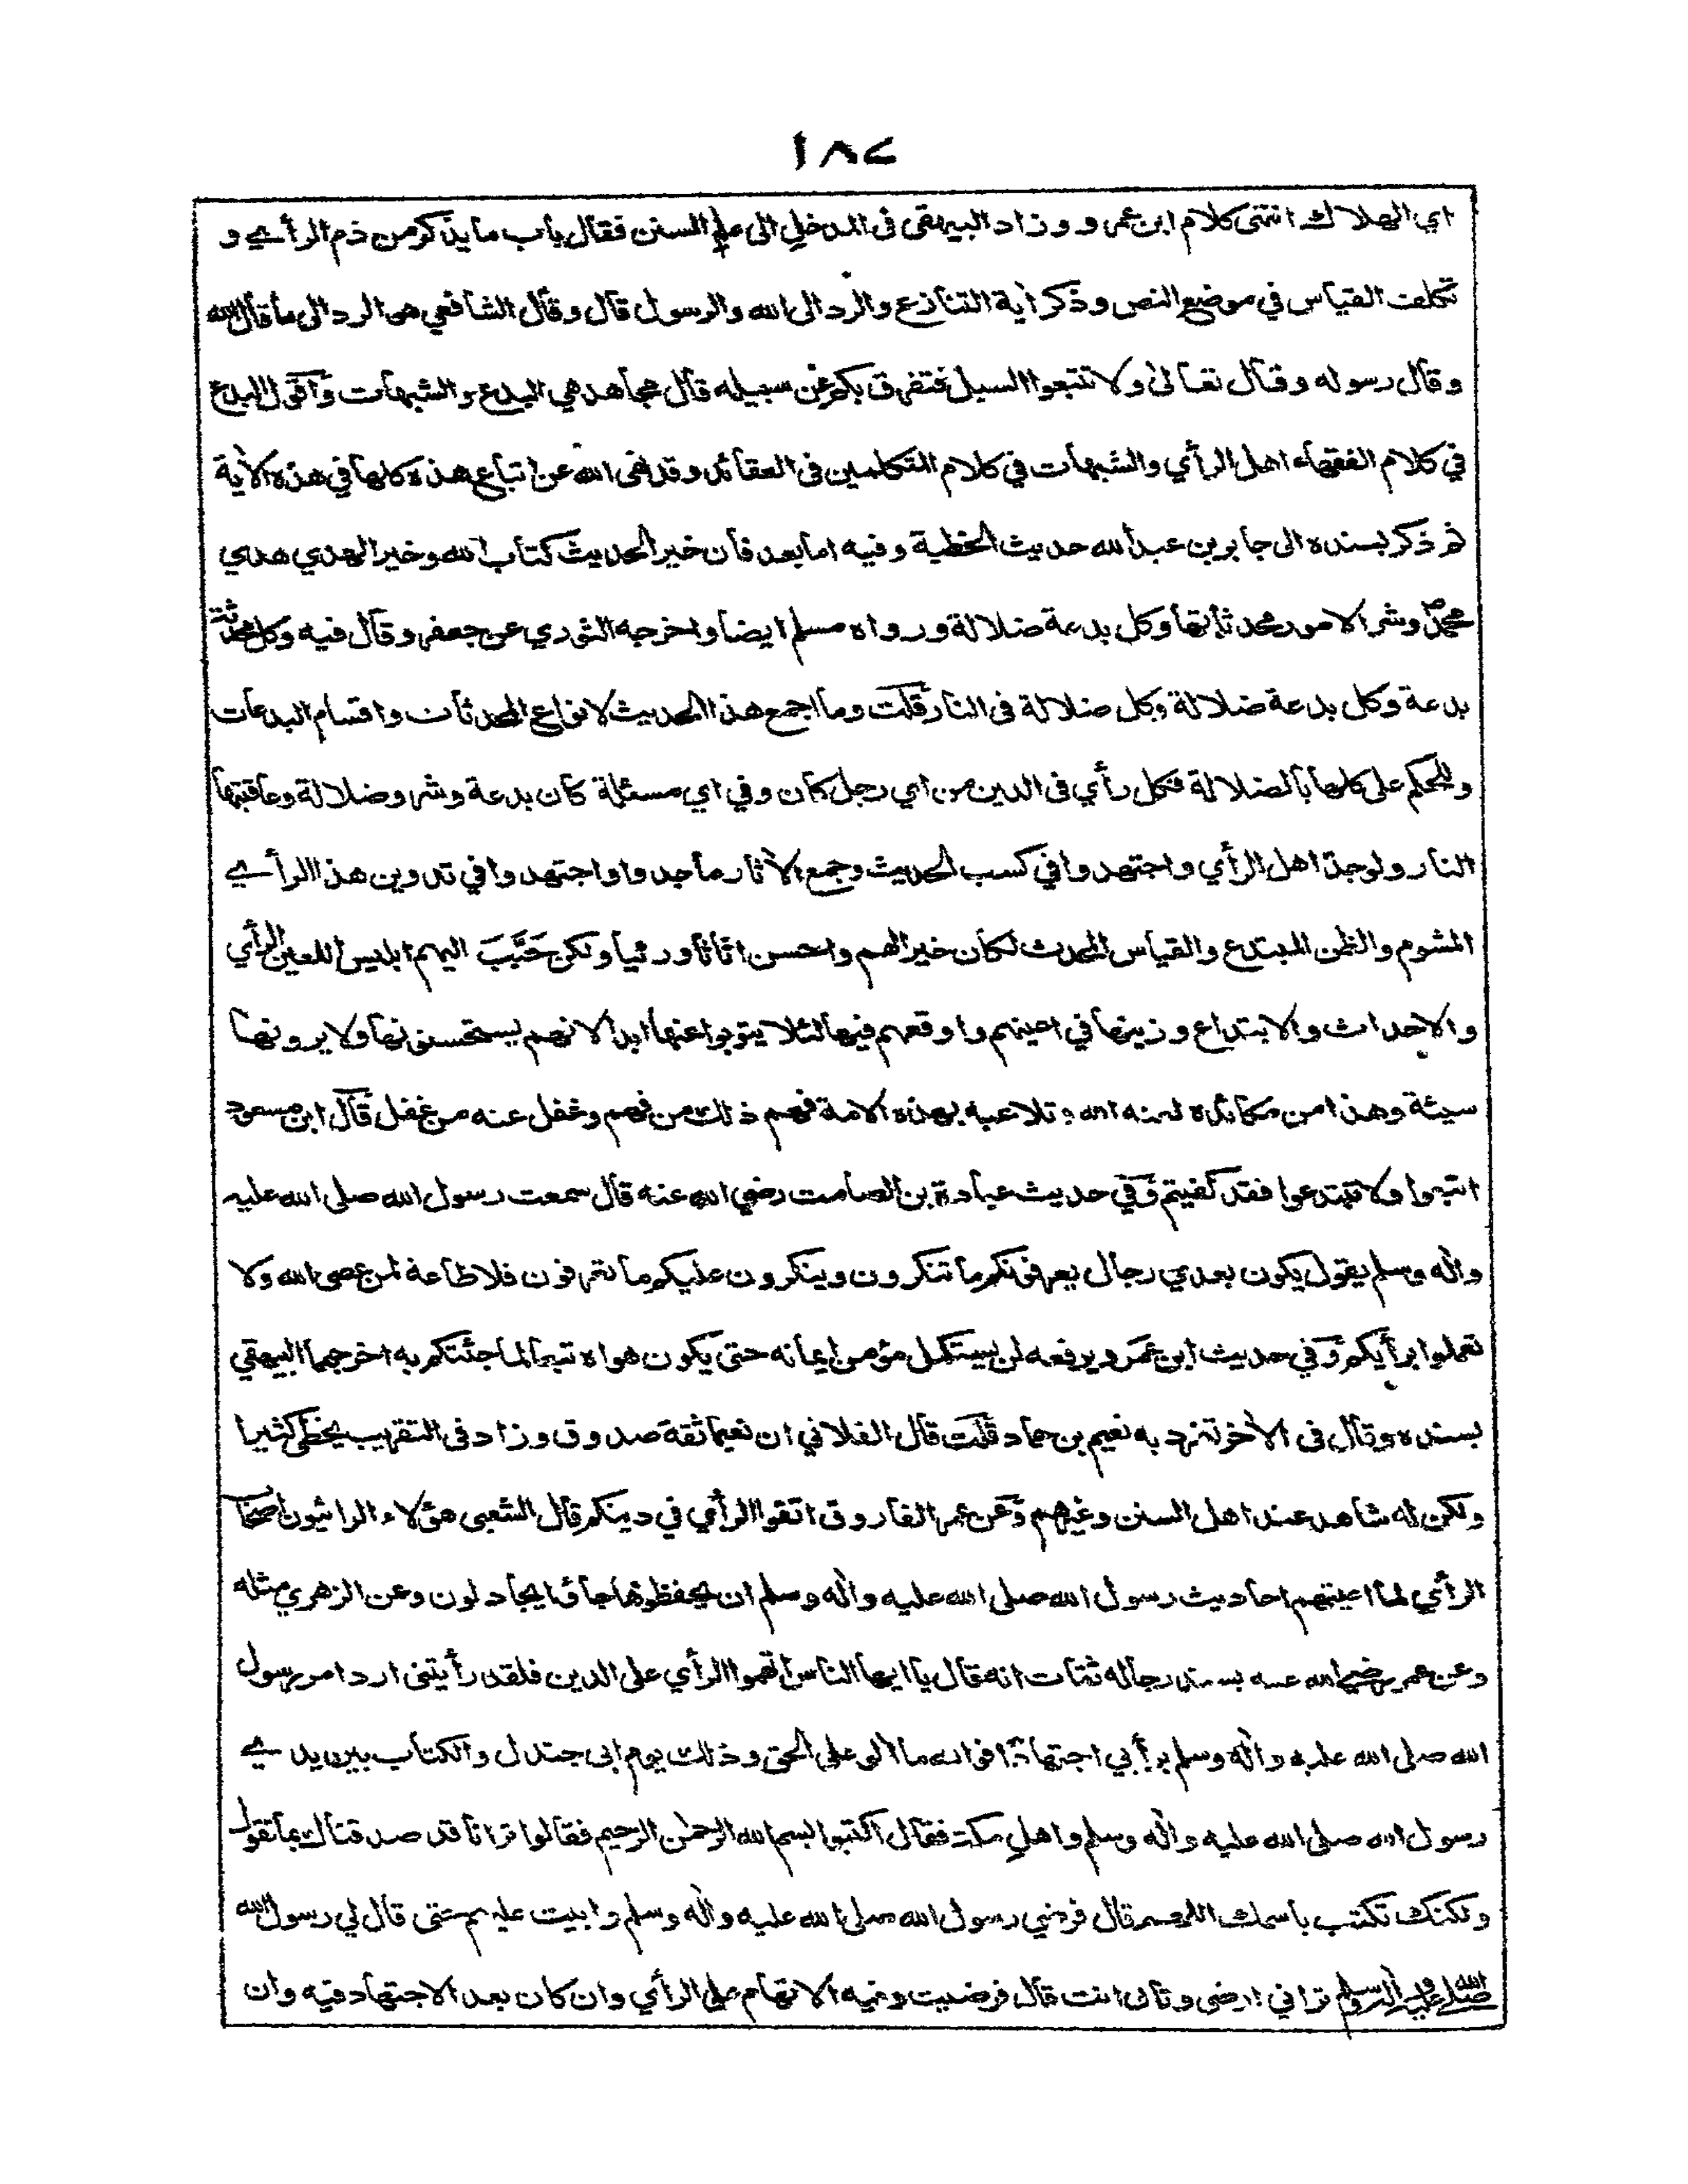 ١٨٧
اي الهلاك انتهى كلام ابن عمرو وزاد البيهقي في المدخل الى علم السنن فقال باب ما يذكر من ذم الرأي و
تكلف القياس في موضع النص وذكر أية التنازع والرد الى الله والرسول قال وقال الشافعي هو الرد الى ما قال الله
وقال رسوله وقال تعالى ولا تتبعوا السبل فتفرق بكم عن سبيله قال مجاهد هي البدع والشبهات وآقول البدع
في كلام الفقهاء اهل الرأي والشبهات في كلام المتكلمين في العقائد وقد نهى الله عن اتباع هذه كلها في هذه الأية
ثم ذكر بسنده الى جابر بن عبد الله حديث الخطبة وفيه اما بعد فان خير الحديث كتاب الله وخير الهدي هدي
محمد وشر الامور محدثاتها وكل بدعة ضلالة ورواه مسلم ايضا واخرجه الثوري عن جعفر وقال فيه وكل محدثة
بدعة وكل بدعة ضلالة وكل ضلالة في النار قلت وما اجمع هذا الحديث لانواع المحدثات واقسام البدعات
وللحكم على كلها بالضلالة فكل رأي في الدين من اي رجل كان وفي اي مسئلة كان بدعة وشر وضلالة وعاقبتها
النار ولو جد اهل الرأي واجتهدوا في كسب الحديث وجمع الأثار ما جدوا واجتهدوا في تدوين هذا الرأي
المشوم والظن المبتدع والقياس المحدث لكان خيرا لهم واحسن اثاثا ورئيا ولكن حَبَّبَ اليهم ابليس اللعين الرأي
والاحداث والابتداع وزينها في اعينهم واوقعهم فيها لئلا يتوبوا عنها ابدا لانهم يستحسنونها ولا يرونها
سيئة وهذا من مكائده لعنه الله وتلاعبه بهذه الامة فهم ذلك من فهم وغفل عنه من غفل قال ابن مسعود
اتبعوا ولا تبتدعوا فقد كفيتم وفي حديث عبادة بن الصامت رضي الله عنه قال سمعت رسول الله صلى الله عليه
وأله وسلم يقول يكون بعدي رجال يعرفونكم ما تنكرون وينكرون عليكم ما تعرفون فلا طاعة لمن عصى الله ولا
تعملوا برأيكم وفي حديث ابن عمرو يرفعه لن يستكمل مؤمن ايمانه حتى يكون هواه تبعا لما جئتكم به اخرجهما البيهقي
بسنده وقال في الأخر تفرد به نعيم بن حماد قلت قال الفلاني ان نعيما ثقة صدوق وزاد في التقريب يخطئ كثيرا
ولكن له شاهد عند اهل السنن وغيرهم وعن عمر الفاروق اتقوا الرأي في دينكم قال الشعبي هؤلاء الرائيون اصحاب
الرأي لما اعيتهم احاديث رسول الله صلى الله عليه وأله وسلم ان يحفظوها جاؤا يجادلون وعن الزهري مثله
وعن عمر رضي الله عنه بسند رجاله ثقات انه قال يا ايها الناس اتهموا الرأي على الدين فلقد رأيتني ارد امر رسول
الله صلى الله عليه وأله وسلم برأيي اجتهادا فوالله ما ألو على الحق وذلك يوم ابي جندل والكتاب بين يدي
رسول الله صلى الله عليه وأله وسلم واهل مكة فقال اكتبوا بسم الله الرحمن الرحيم فقالوا ترانا قد صدقناك بما تقول
ولكنك تكتب باسمك اللهم قال فرضي رسول الله صلى الله عليه وأله وسلم وابيت عليهم حتى قال لي رسول الله
صلى الله عليه وأله وسلم تراني ارضى وتأبى انت قال فرضيت وفيه الاتهام على الرأي وان كان بعد الاجتهاد فيه وان